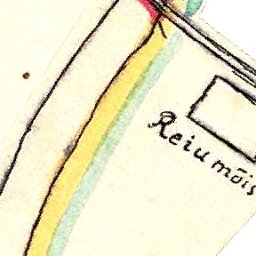 Reiu mõis